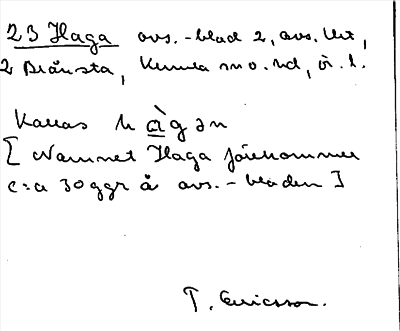 23 Haga avs.-blad 2, avs. Urt,
2 Brånsta, Kumla sn o. hd, ör. l.
Kallas hàgan
[Namnet Haga förekommer
c:a 30 ggr å avs.-bladen]
T. Ericsson.